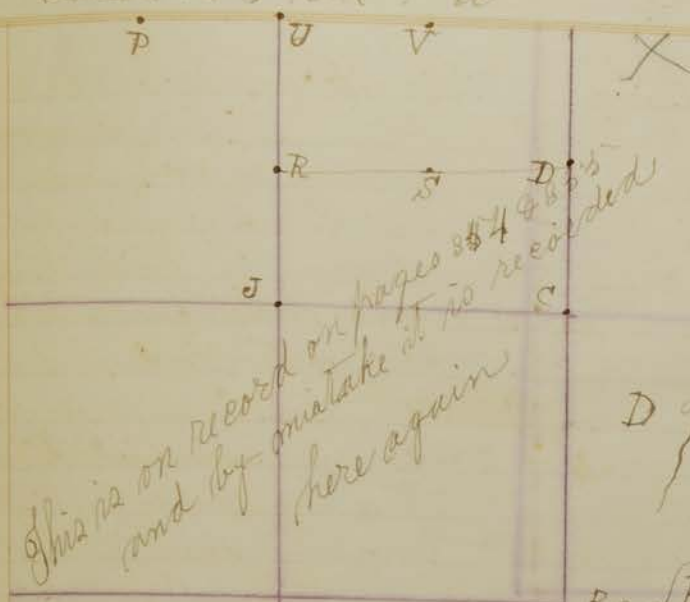 P U V
R S D
J C
D
This is on record on pages
and by mistake it is recorded
here again